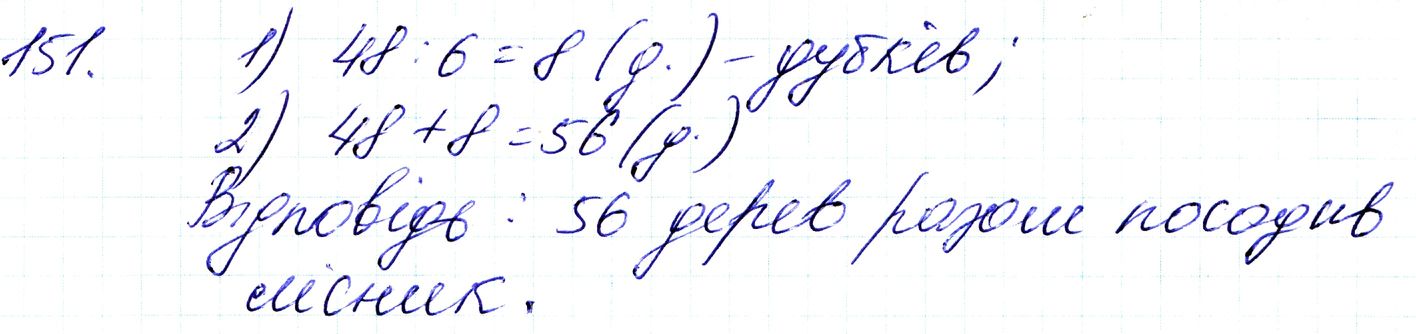 151. 1) 48 : 6 = 8 (д.) – дубків;
2) 48 + 8 = 56 (д.)
Відповідь : 56 дерев разом посадив
лісник.